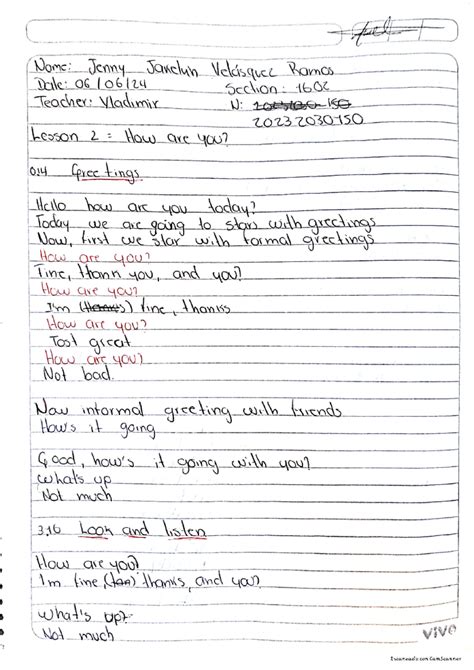 Name: Jenny Javelyn Velásquez Ramos
Date: 06/06/24 Section: 1602
Teacher: Vladimir N: 
20232030150
Lesson 2 = How are you?
0:14 Greetings
Hello how are you today?
Today we are going to stars with greetings
Now, first we star with formal greetings
How are you?
Fine, thank you, and you?
How are you?
I'm (thanks) fine, thanks
How are you?
Jost great
How are you?
Not bad.
Now informal greeting with friends
How's it going
Good, how's it going with you?
What's up
Not much
3:16 Look and listen
How are you?
I'm fine, thanks, and you?
What's up?
Not much
vivo
Escaneado con CamScanner